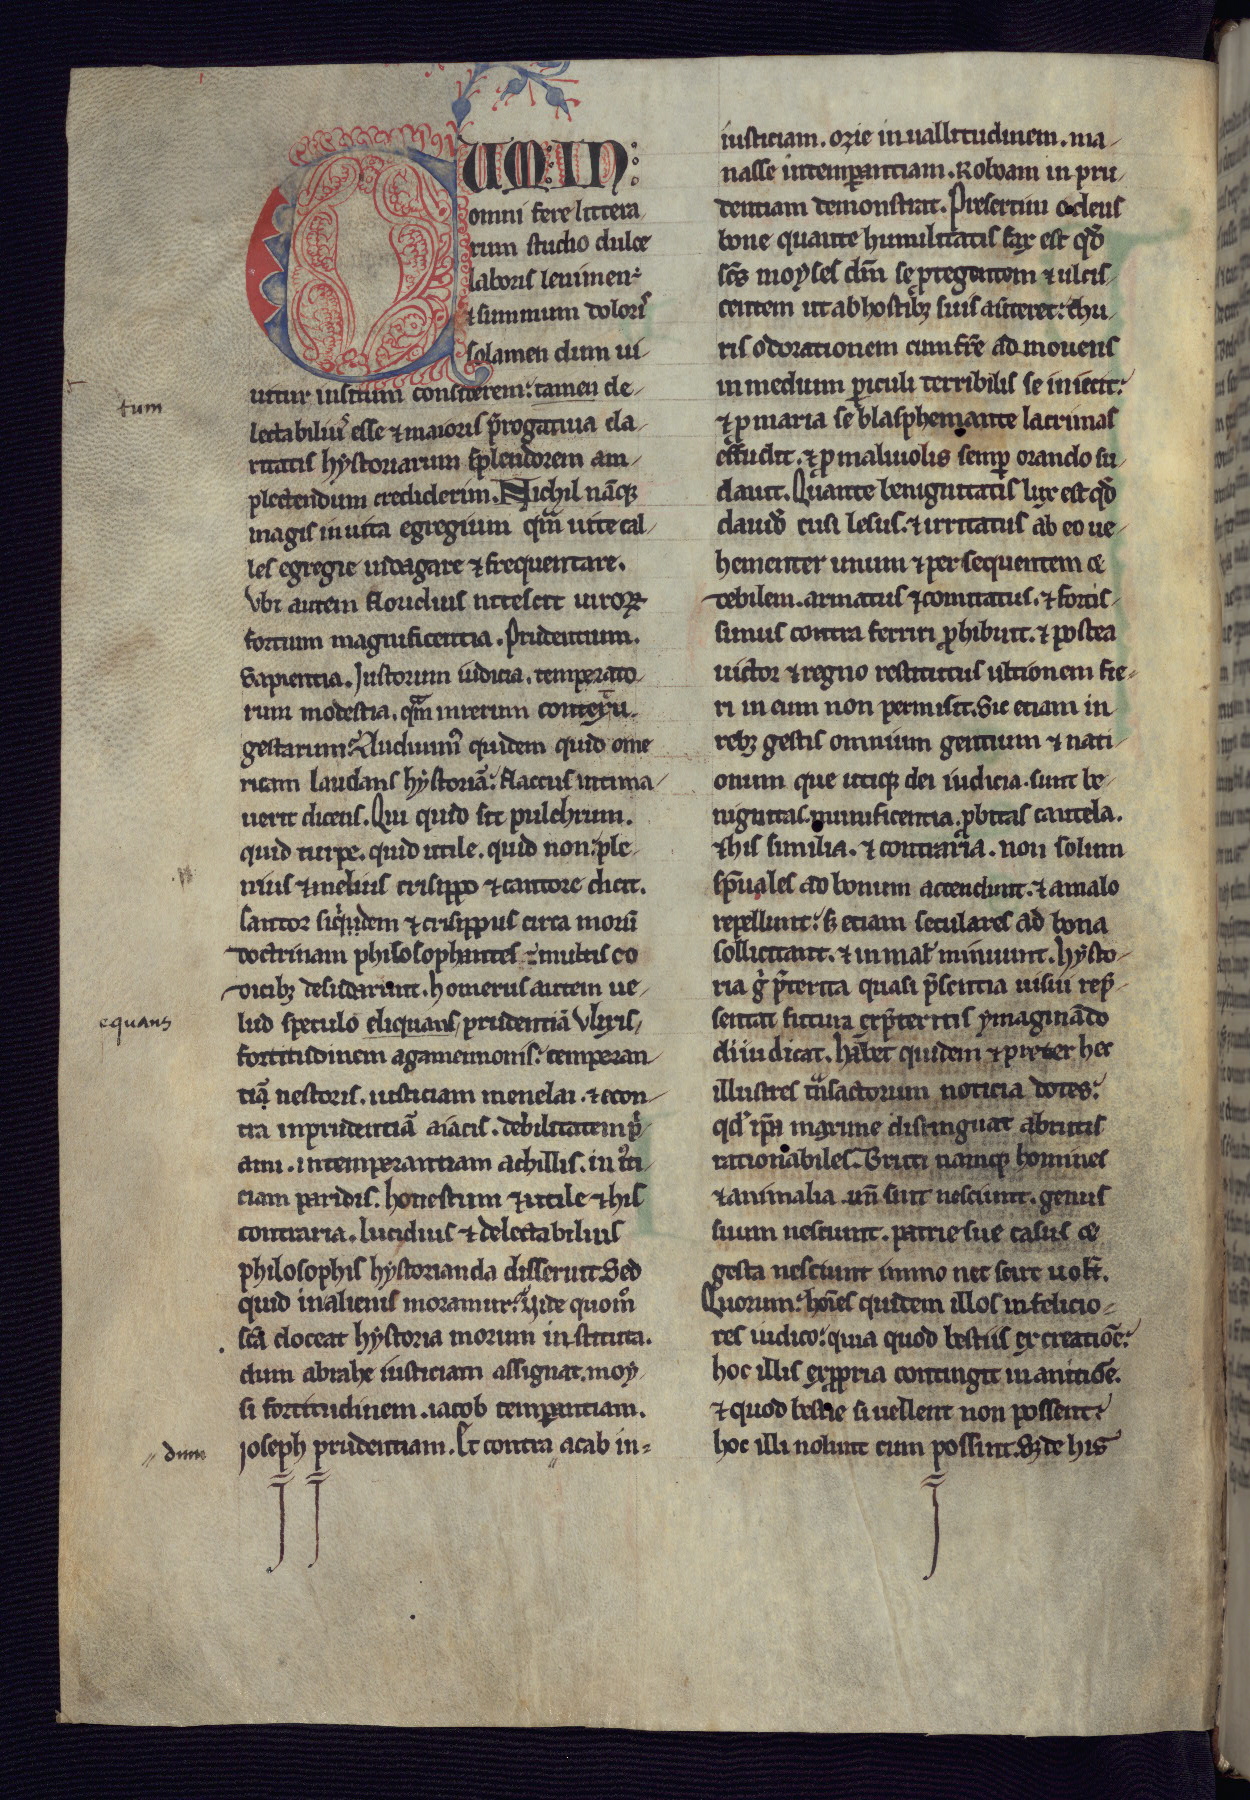 CUM: IN:
omni fere littera
rum studio dulce
laboris leuimen:
⁊ summum dolorꝭ
solamen dum ui
uitur insitum considerem: tamen de
tum
lectabiliuꝰ esse ⁊ maioris p̃rogatiua cla
ritatis hystoriarum splendorem am
plectendum crediderim. Nichil nãqꝫ
magis in uita egregium qͣm uite cal
les egregie uidagare ⁊ frequentare.
Vbi autem floridius nitescit uiroꝝ
fortium magnificentia. Prudentium.
Sapientia. Iustorum iudicia. temperato
rum modestia. qͣm in rerum contextu.
gestarum:
quidem quid ome
ricam laudans hystoriã: flaccus intima
uerit dicens. Qui quid sit pulchrum.
quid turpe. quid utile. quid non: ple
nius ⁊ melius crisippo ⁊ cantore dicit.
Cantor siqͥdem ⁊ crisippus circa morũ
doctrinam philosophantes ⁊ multis co
dicibꝫ desudarunt. homerus autem ue
equans
lud speculo eliquans prudentiã Vlixis
fortitudinem agamemnonis: temperan
tiã nestoris. iusticiam menelai. ⁊ econ
tra inprudentiã aiacis. debilitatem pͥ
ami. intemperantiam achillis. iniusti
ciam paridis. honestum ⁊ utile ⁊ his
contraria. lucidius ⁊ delectabilius
philosophis hystorianda disseruit Sed
quid in alienis moramur. Vide quom̊
sc̃a doceat hystoria morum instituta.
dum abrahe iusticiam assignat. moy
si fortitudinem. iacob temꝑantiam.
dum
Ioseph prudentiam. Et contra acab in=
iusticiam. ozie inuallitudinem. ma
nasse intemꝑantiam. Roboam inpru
dentiam demonstrat. Presertim o deus
bone quante humilitatis fax est qđ
sc̃s moyses
⁊ ulcis
centem ut ab hostibꝫ suis
: thu
ris odorationem cum fr̃e admouens
in medium ꝑiculi terribilis se iniecit:
⁊ ꝓ maria se blasphemante lacrimas
effudit. ⁊ ꝓ maliuolis semꝑ orando su
dauit. Quante benignitatis lux est qđ
dauid cusi lesus. ⁊ irritatus ab eo ue
hementer unum ⁊ persequentem ⁊
debilem. armatus ⁊ comitatus. ⁊ fortis
simus contra ferriri ꝓhibuit. ⁊ postea
uictor ⁊ regno restitutus ultionem fie
ri in eum non permisit. Sic etiam in
rebꝫ gestis omnium gentium ⁊ nati
onum que utiqꝫ dei iudicia. sunt be
nignitas. munificentia. ꝓbitas cautela.
⁊ his similia. ⁊ contraria. non solum
sp̃uales ad bonum accendunt. ⁊ a malo
repellunt: sꝫ etiam seculares ad bona
sollicitant. ⁊ in
minuunt. hysto
ria gͥ p̃terita quasi p̃sentia uisui rep̃
sentat futura ex p̃teritis ymaginãdo
diiudicat. habet quidem ⁊ preter hec
illustres tͣnsactorum noticia dotes:
qđ ip̃a maxime distinguat abrutis
rationabiles. Bruti namqꝫ homines
⁊ animalia uñ sint nesciunt. genus
suum nesciunt. patrie sue casus ⁊
gesta nesciunt immo nec scire uolt̃.
Quorum: hoĩes quidem illos infelicio=
res iudico: quia quod bestiis ex creatiõe.
hoc illis ex ꝓpria contingit inanitiõe.
⁊ quod bestie si uellent non possent:
hoc illi nolunt cum possint. Sꝫ de his